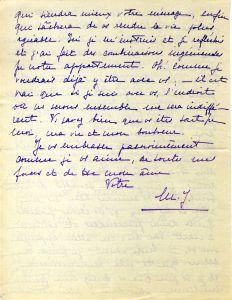 qui tiendra mieux votre ménage, enfin
que tâchera de vs rendre la vie plus
agréable. Ici je m'instruis et je réfléchis
et j'ai fait des combinaisons ingénieuses
pr notre appartement. Oh! comme je
voudrais déjà y être avec vs ; — il est
vrai que si je suis avec vs, l'endroit
où ns serons ensemble me sera indiffé-
rent. Vs savez bien que vs êtes tout pr
moi, ma vie et mon bonheur.
Je vs embrasse passionnément
comme je vs aime, de toutes mes
forces et de tte mon âme
Votre
M. J.